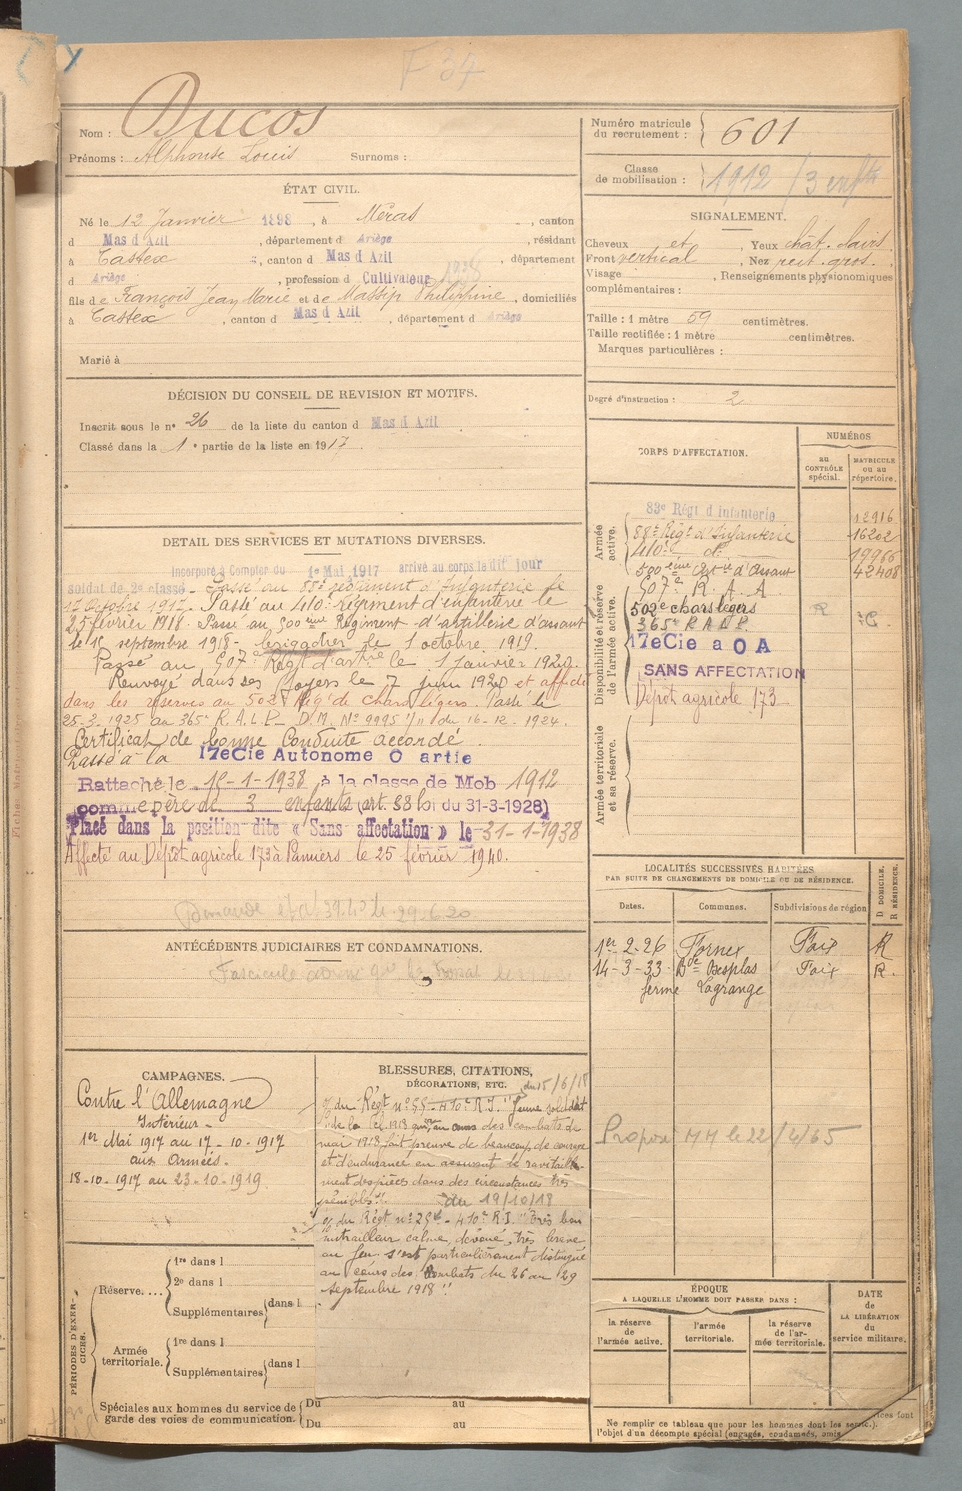 F 34
Nom : Ducos
Prénoms : Alphonse Louis Surnoms :
Numéro matricule du recrutement : 601
Classe de mobilisation : 1912 / 3 enfts
ÉTAT CIVIL.
Né le 12 Janvier 1898, à Méras, canton
d Mas d'Azil, département d Ariège, résidant
à Castex, canton d Mas d'Azil, département
d Ariège, profession de Cultivateur
fils de François Jean Marie et de Massip Philiphine, domiciliés
à Castex, canton d Mas d'Azil, département d Ariège
Marié à
SIGNALEMENT.
Cheveux et, Yeux chât. clairs
Front vertical, Nez rect. gros.
Visage, Renseignements physionomiques
complémentaires :
Taille : 1 mètre 59 centimètres.
Taille rectifiée : 1 mètre centimètres.
Marques particulières :
Degré d'instruction : 2
DÉCISION DU CONSEIL DE REVISION ET MOTIFS.
Inscrit sous le n° 26 de la liste du canton d Mas d'Azil
Classé dans la 1e partie de la liste en 1917.
DÉTAIL DES SERVICES ET MUTATIONS DIVERSES.
Incorporé à Compter du 1er Mai 1917 arrivé au corps le dit jour
soldat de 2e classe. Passé au 88e régiment d'Infanterie le
17 Octobre 1917. Passé au 410e Régiment d'infanterie le
25 février 1918. Passé au 500eme Régiment d'artillerie d'assaut
le septembre 1918. brigadier le 1 octobre 1919.
Passé au 507e Régt d'artrie le 1 Janvier 1920.
Renvoyé dans ses foyers le 7 juin 1920 et affecté
dans les réserves au 502e Rég. de Chars légers. Passé le
25-3-1925 au 365e R.A.L.P. D.M. No 9995 1/11 du 16-12-1924.
Certificat de bonne Conduite accordé
Passé à la 17e Cie Autonome O artie
Rattaché le 15-1-1938 à la classe de Mob 1912
comme père de 3 enfants (art. 58 loi du 31-3-1928)
Placé dans la position dite « Sans affectation » le 31-1-1938
Affecté au Dépôt agricole 173 à Pamiers le 25 février 1940.
CORPS D'AFFECTATION.
NUMÉROS
au CONTRÔLE spécial.
MATRICULE ou au répertoire.
Armée active.
83e Régt d'Infanterie 12916
88e Régt d'Infanterie 16202
410e d° 19966
500eme Artie d'Assaut 42408
Disponibilité et réserve de l'armée active.
507e R.A.A.
502e chars légers
365e R.A.L.P.
17e Cie a O A
SANS AFFECTATION
Dépôt agricole 173
Armée territoriale et sa réserve.
ANTÉCÉDENTS JUDICIAIRES ET CONDAMNATIONS.
LOCALITÉS SUCCESSIVES HABITÉES
PAR SUITE DE CHANGEMENTS DE DOMICILE OU DE RÉSIDENCE.
Dates. Communes. Subdivisions de région D DOMICILE. R RÉSIDENCE.
1er-2-26 Fornex Foix R
14-3-33 Bde Besplas Foix R.
ferme Lagrange
Proposé MM le 22/4/65
CAMPAGNES.
Contre l'Allemagne
Intérieur -
1er Mai 1917 au 17-10-1917
aux Armées.
18-10-1917 au 23-10-1919
BLESSURES, CITATIONS,
DÉCORATIONS, ETC.
du 15/6/18
% du Régt n° 55 - 410e R.I. "Jeune soldat
de la Cl. 1918 qui, au cours des combats de
mai 1918, fait preuve de beaucoup de courage
et d'endurance en assurant le ravitaille-
ment des pièces dans des circonstances très
pénibles". du 19/10/18
% du Régt n° - 410e R.I. "Très bon
mitrailleur calme, dévoué, très brave
au feu s'est particulièrement distingué
au cours des Combats du 26 au 29
septembre 1918".
PÉRIODES D'EXERCICES.
Réserve....
1re dans l
2e dans l
Supplémentaires dans l
Armée territoriale.
1re dans l
Supplémentaires dans l
Spéciales aux hommes du service de garde des voies de communication.
Du au
Du au
ÉPOQUE
A LAQUELLE L'HOMME DOIT PASSER DANS :
la réserve de l'armée active.
l'armée territoriale.
la réserve de l'armée territoriale.
DATE de LA LIBÉRATION du service militaire.
Ne remplir ce tableau que pour les hommes dont les
l'objet d'un décompte spécial (engagés, condamnés, omis